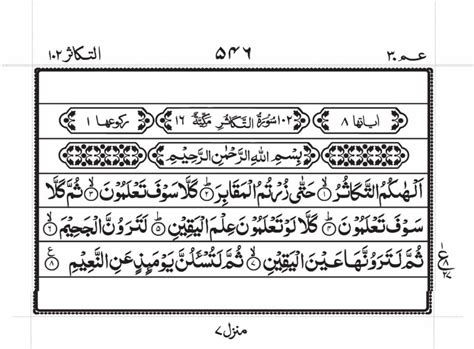 عم ۳۰ ۵۴۶ التكاثر ۱۰۲
اياتها ۸ ۱۰۲ سُوْرَةُ التَّكَاثُرِ مَكِّيَّةٌ ۱۶ ركوعها ۱
بِسْمِ اللّٰهِ الرَّحْمٰنِ الرَّحِيْمِ
اَلْهٰىكُمُ التَّكَاثُرُۙ ۱ حَتّٰى زُرْتُمُ الْمَقَابِرَؕ ۲ كَلَّا سَوْفَ تَعْلَمُوْنَۙ ۳ ثُمَّ كَلَّا
سَوْفَ تَعْلَمُوْنَؕ ۴ كَلَّا لَوْ تَعْلَمُوْنَ عِلْمَ الْيَقِيْنِؕ ۵ لَتَرَوُنَّ الْجَحِيْمَۙ ۶
ثُمَّ لَتَرَوُنَّهَا عَيْنَ الْيَقِيْنِۙ ۷ ثُمَّ لَتُسْـَٔلُنَّ يَوْمَىِٕذٍ عَنِ النَّعِيْمِ ۸ ع
۱ ع ۸ ۲۷
منزل ۷